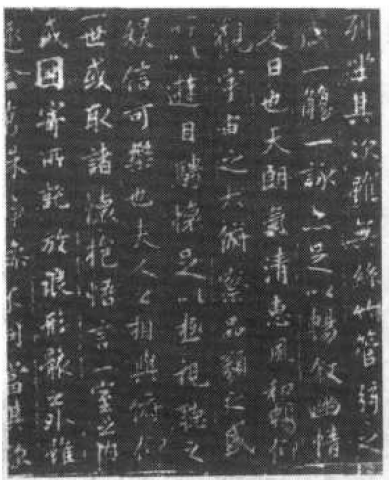 列坐其次雖無絲竹管弦之
盛一觴一詠亦足以暢敘幽情
是日也天朗氣清惠風和暢仰
觀宇宙之大俯察品類之盛
所以遊目騁懷足以極視聽之
娛信可樂也夫人之相與俯仰
一世或取諸懷抱悟言一室之內
或因寄所託放浪形骸之外雖
趣舍萬殊靜躁不同當其欣